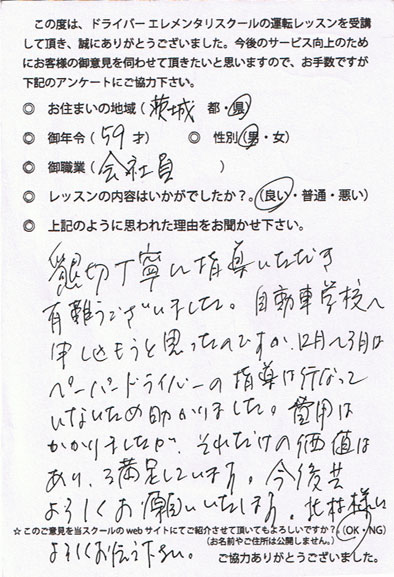 この度は、ドライバー エレメンタリスクールの運転レッスンを受講
して頂き、誠にありがとうございました。今後のサービス向上のため
にお客様の御意見を伺わせて頂きたいと思いますので、お手数ですが
下記のアンケートにご協力下さい。
◎ お住まいの地域（茨城 都・県）
◎ 御年令（59 才） ◎ 性別（男・女）
◎ 御職業（会社員 ）
◎ レッスンの内容はいかがでしたか？。（良い・普通・悪い）
◎ 上記のように思われた理由をお聞かせ下さい。
懇切丁寧に指導いただき
有難うございました。自動車学校へ
申し込もうと思ったのですが、12月〜3月は
ペーパードライバーの指導は行なって
いないため助かりました。費用は
かかりましたが、それだけの価値は
あり、満足しています。今後共
よろしくお願いいたします。北村様に
☆このご意見を当スクールの web サイトにてご紹介させて頂いてもよろしいですか？。（OK・NG）
（お名前やご住所は公開しません。）
よろしくお伝え下さい。
ご協力ありがとうございました。